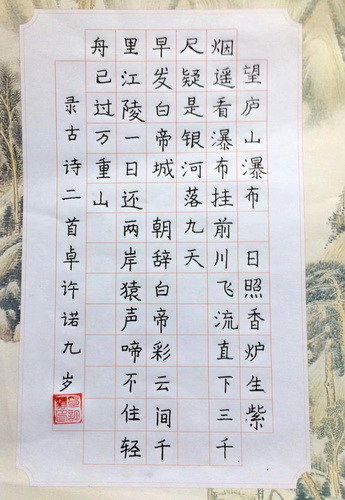 望庐山瀑布 日照香炉生紫
烟遥看瀑布挂前川飞流直下三千
尺疑是银河落九天
早发白帝城 朝辞白帝彩云间千
里江陵一日还两岸猿声啼不住轻
舟已过万重山
录古诗二首卓许诺九岁